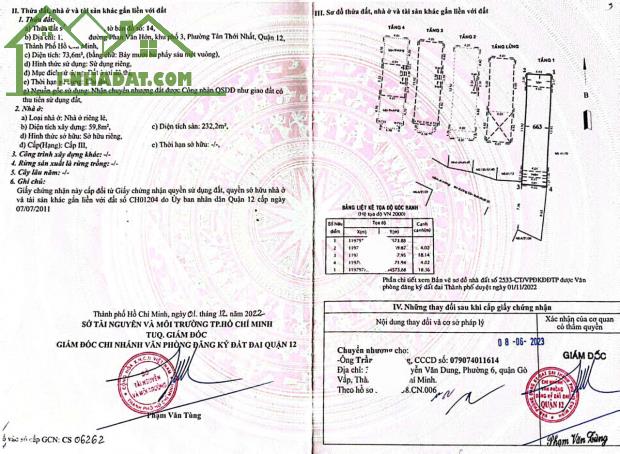 II. Thửa đất, nhà ở và tài sản khác gắn liền với đất
1. Thửa đất:
a) Thửa đất s tờ bản đồ số: 14,
b) Địa chỉ: 1, đường Phan Văn Hớn, khu phố 3, Phường Tân Thới Nhất, Quận 12,
Thành Phố Hồ Chí Minh,
c) Diện tích: 73,6m², (bằng chữ: Bảy mươi ba phẩy sáu mét vuông),
d) Hình thức sử dụng: Sử dụng riêng,
đ) Mục đích sử
e) Thời hạn
g) Nguồn gốc sử dụng: Nhận chuyển nhượng đất được Công nhận QSDĐ như giao đất có
thu tiền sử dụng đất,
2. Nhà ở:
a) Loại nhà ở: Nhà ở riêng lẻ,
b) Diện tích xây dựng: 59,8m², c) Diện tích sàn: 232,2m²,
d) Hình thức sở hữu: Sở hữu riêng,
đ) Cấp(Hạng): Cấp III, e) Thời hạn sở hữu: -/-,
3. Công trình xây dựng khác: -/-
4. Rừng sản xuất là rừng trồng: -/-
5. Cây lâu năm: -/-
6. Ghi chú:
Giấy chứng nhận này cấp đổi từ Giấy chứng nhận quyền sử dụng đất, quyền sở hữu nhà ở
và tài sản khác gắn liền với đất số CH01204 do Ủy ban nhân dân Quận 12 cấp ngày
07/07/2011
TINNHADAT.COM
Thành phố Hồ Chí Minh, ngày 01 tháng 12 năm 2022
SỞ TÀI NGUYÊN VÀ MÔI TRƯỜNG TP.HỒ CHÍ MINH
TUQ. GIÁM ĐỐC
GIÁM ĐỐC CHI NHÁNH VĂN PHÒNG ĐĂNG KÝ ĐẤT ĐAI QUẬN 12
SỞ
TÀI NGUYÊN
VÀ MÔI TRƯỜNG
Phạm Văn Tùng
vào sổ cấp GCN: CS 06262
III. Sơ đồ thửa đất, nhà ở và tài sản khác gắn liền với đất
TẦNG 4
TẦNG 3
TẦNG 2
TẦNG LỬNG
TẦNG 1
663
B
BẢNG LIỆT KÊ TỌA ĐỘ GÓC RANH
(Hệ tọa độ VN 2000)
Số hiệu điểm Tọa độ Cạnh
X(m) Y(m) canh(m)
4.02
18.14
4.02
18.36
Phần chi tiết xem Bản vẽ sơ đồ nhà đất số 2533-CDVPĐKĐĐTP được Văn
phòng đăng ký đất đai Thành phố duyệt ngày 01/11/2022
IV. Những thay đổi sau khi cấp giấy chứng nhận
Nội dung thay đổi và cơ sở pháp lý
Xác nhận của cơ quan
có thẩm quyền
08-06-2023
Chuyển nhượng cho:
-Ông Trần g, CCCD số: 079074011614
Địa chỉ: yễn Văn Dung, Phường 6, quận Gò
Vấp, Thà í Minh.
Theo hồ sơ 8.CN.006
GIÁM ĐỐC
CHI NHÁNH
VĂN PHÒNG
ĐĂNG KÝ ĐẤT ĐAI
QUẬN 12
Phạm Văn Tùng